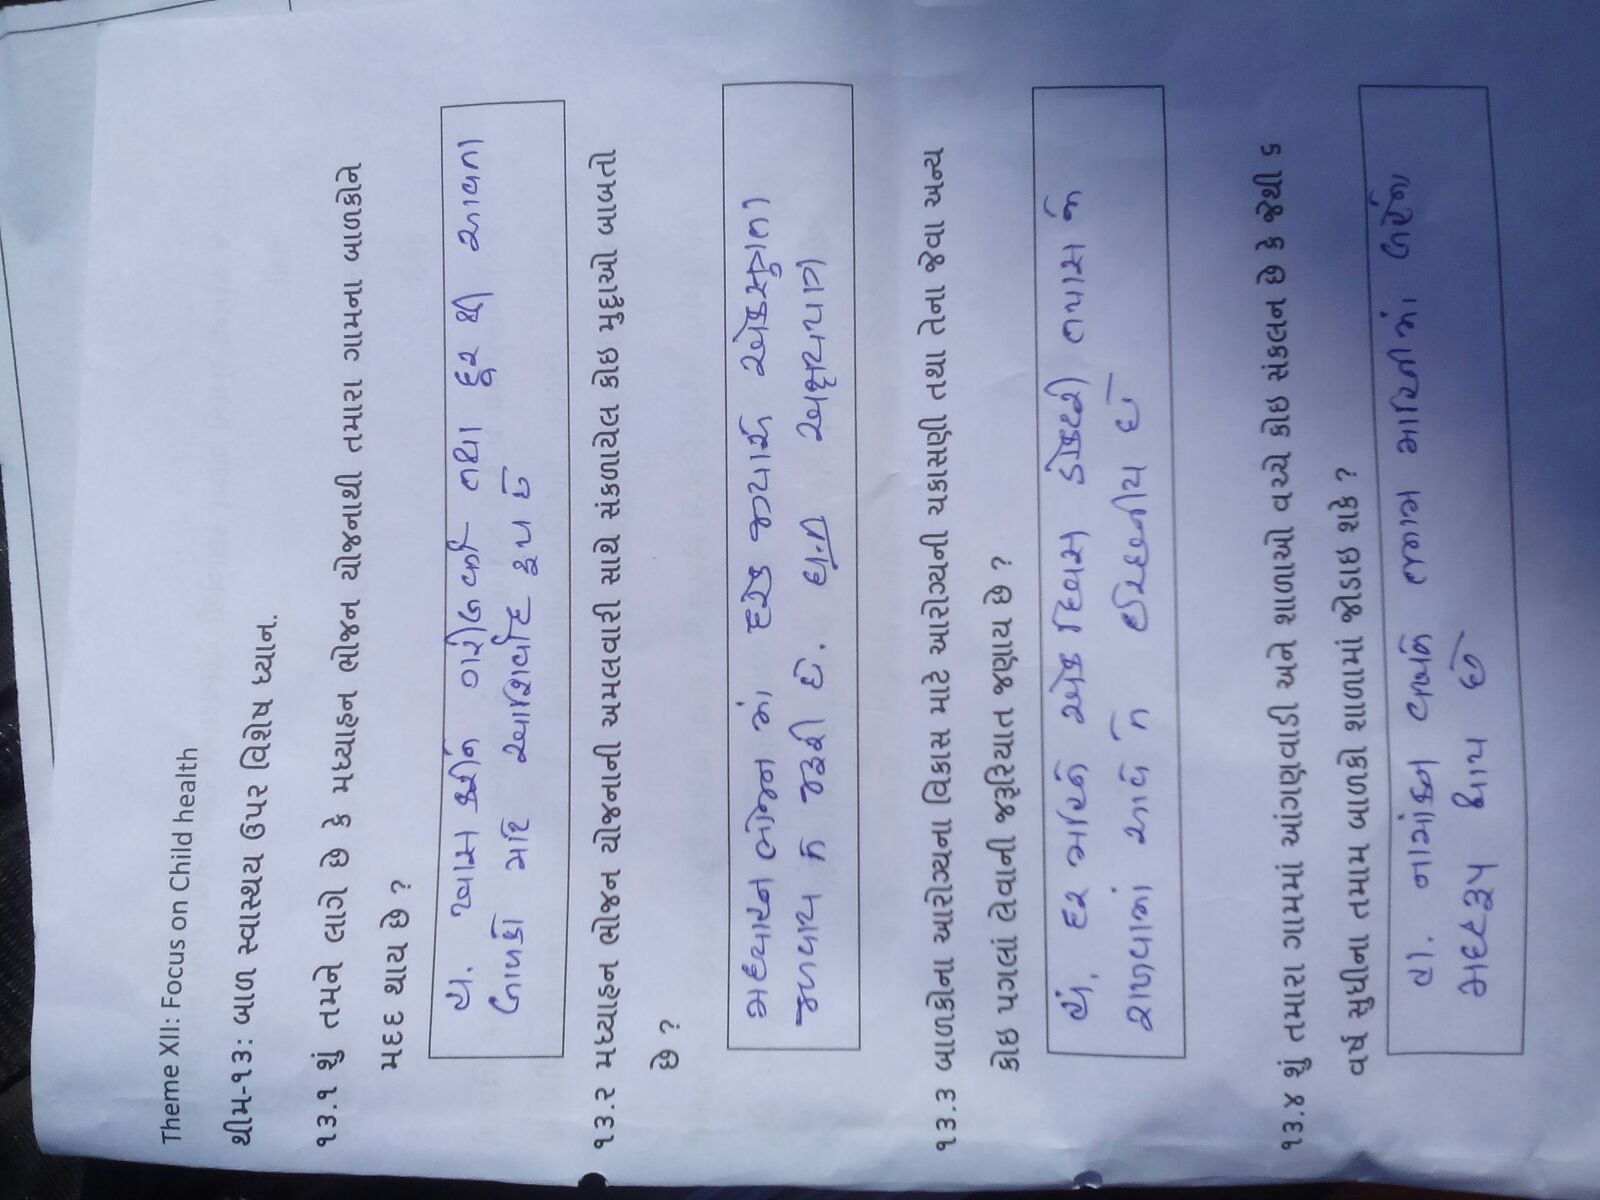 Theme XII: Focus on Child health
થીમ-૧૩: બાળ સ્વાસ્થય ઉપર વિશેષ ધ્યાન.
૧૩.૧ શું તમને લાગે છે કે મધ્યાહન ભોજન યોજનાથી તમારા ગામના બાળકોને
મદદ થાય છે ?
હા. ખાસ કરીને ગરીબ વર્ગ તથા દુર થી આવતા
બાળકો માટે આર્શિવાદ રૂપ છે
૧૩.૨ મધ્યાહન ભોજન યોજનાની અમલવારી સાથે સંકળાયેલ કોઇ મુદ્દાઓ બાબતો
છે ?
મધ્યાહન ભોજન માં દરેક જગ્યાએ એકસુત્રતા
જળવાય તે જરૂરી છે. દા.ત અક્ષયપાત્ર
૧૩.૩ બાળકોના આરોગ્યના વિકાસ માટે આરોગ્યની ચકાસણી તથા તેના જેવા અન્ય
કોઇ પગલાં લેવાની જરૂરિયાત જણાય છે ?
હા, દર માસે એક દિવસ ડોકટરી તપાસ કે
રાખવામાં આવે તે ઇચ્છનીય છે
૧૩.૪ શું તમારા ગામમાં આંગણવાડી અને શાળાઓ વચ્ચે કોઇ સંકલન છે કે જેથી ૬
વર્ષ સુધીના તમામ બાળકો શાળામાં જોડાઇ શકે ?
હા. નામાંકન વખતે તમામ માહિતીમાં
મદદરૂપ થાય છે